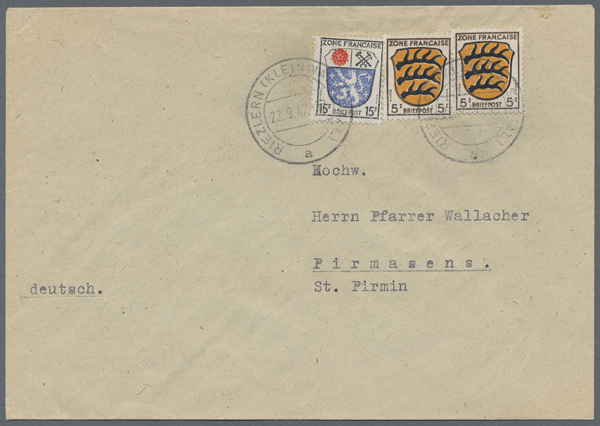 ZONE FRANCAISE
15F BRIEFPOST 15F
ZONE FRANCAISE
5F BRIEFPOST 5F
ZONE FRANCAISE
5F BRIEFPOST 5F
RIEZLERN (KLEINW
22.9.4
a
Hochw.
Herrn Pfarrer Wallacher
Pirmasens.
St. Pirmin
deutsch.